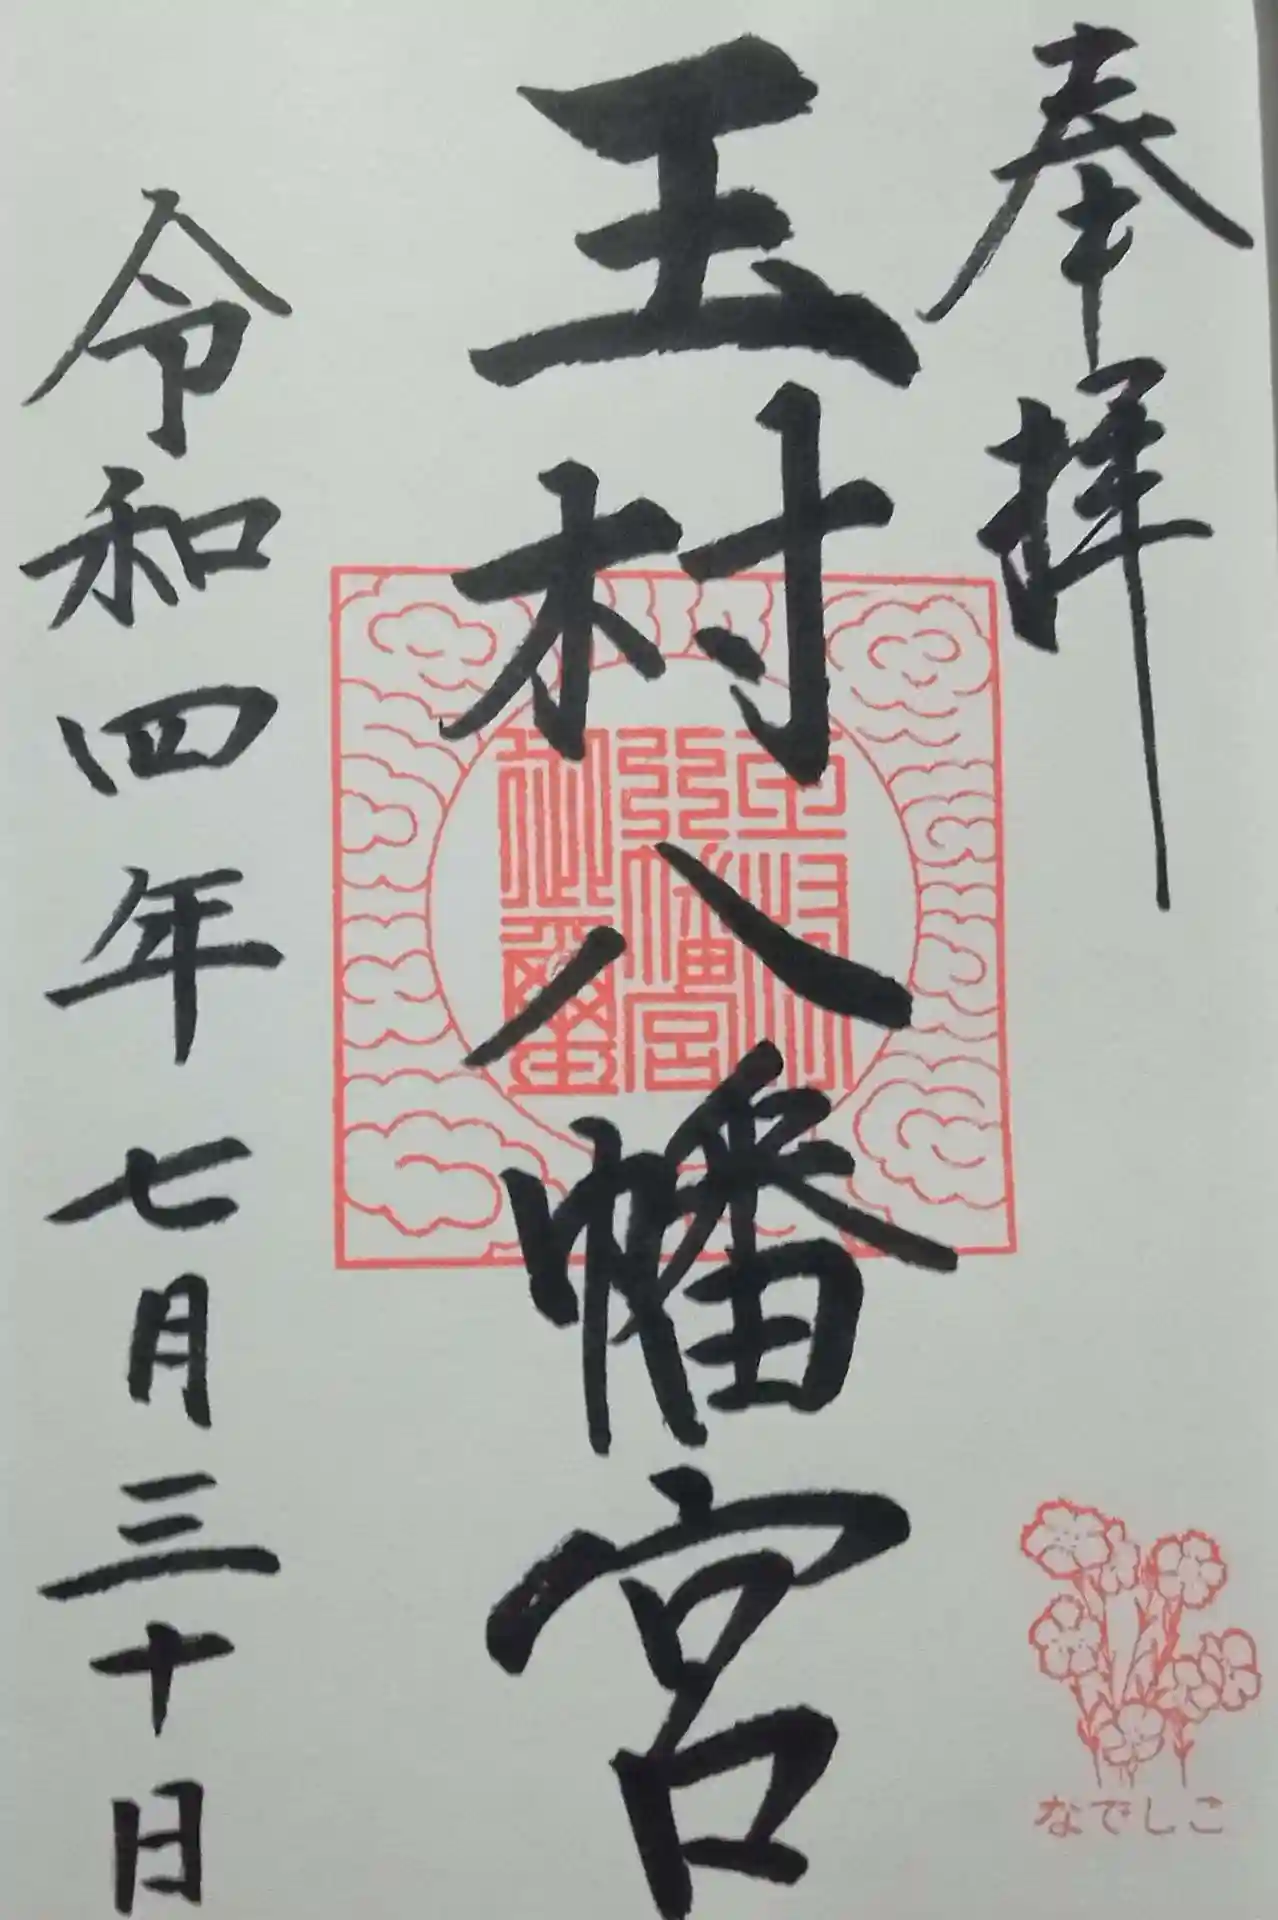 奉拝
玉村八幡宮
玉村
八幡宮
神璽
令和四年七月三十日
なでしこ